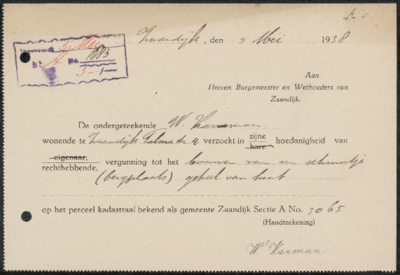 Zaandijk, den 5 Mei 1938
No. 1083
Aan
Heeren Burgemeester en Wethouders van
Zaandijk.
De ondergeteekende W. Harsman
wonende te Zaandijk Palmstr 4 verzoekt in zijne
hare hoedanigheid van
eigenaar,
rechthebbende, vergunning tot het bouwen van een schuurtje
(bergplaats) geheel van hout
op het perceel kadastraal bekend als gemeente Zaandijk Sectie A No. 3065
(Handteekening)